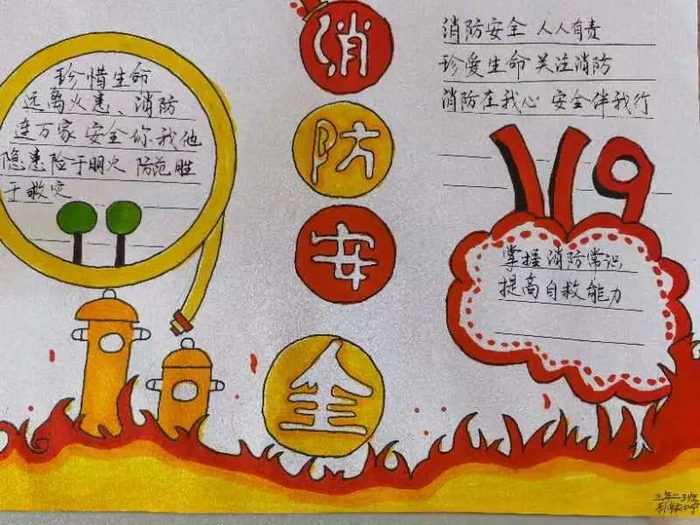 珍惜生命
远离火患、消防
连万家 安全你我他
隐患险于明火 防范胜
于救灾
消
防
安
全
消防安全 人人有责
珍爱生命 关注消防
消防在我心 安全伴我行
119
掌握消防常识
提高自救能力